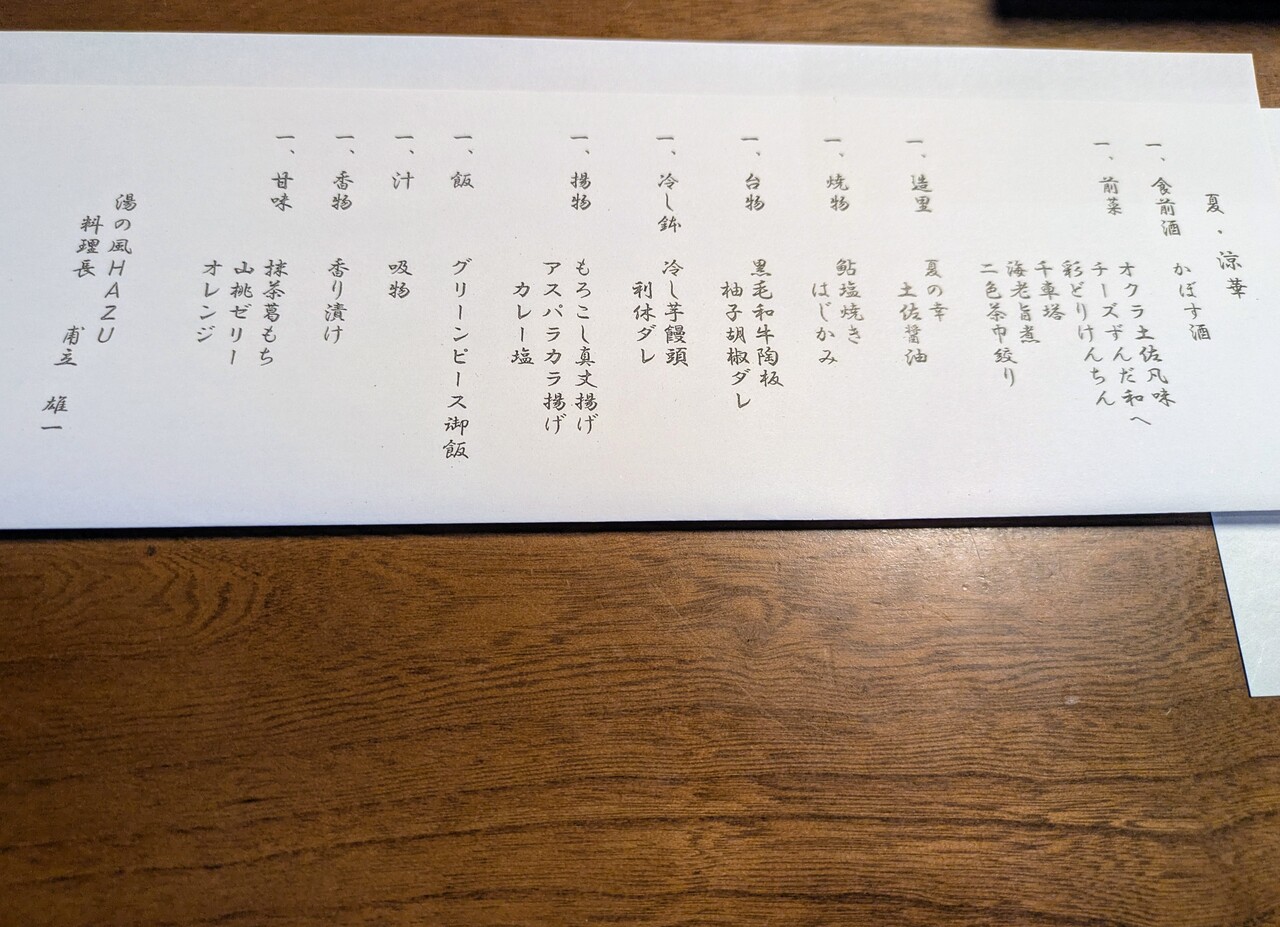 夏・涼華
一、食前酒 かぼす酒
一、前菜 オクラ土佐風味
チーズずんだ和へ
彩どりけんちん
千車塔
海老旨煮
二色茶巾絞り
一、造里 夏の幸
土佐醤油
一、焼物 鮎塩焼き
はじかみ
一、台物 黒毛和牛陶板
柚子胡椒ダレ
一、冷し鉢 冷し芋饅頭
利休ダレ
一、揚物 もろこし真丈揚げ
アスパラカラ揚げ
カレー塩
一、飯 グリーンピース御飯
一、汁 吸物
一、香物 香り漬け
一、甘味 抹茶葛もち
山桃ゼリー
オレンジ
湯の風HAZU
料理長 甫立 雄一